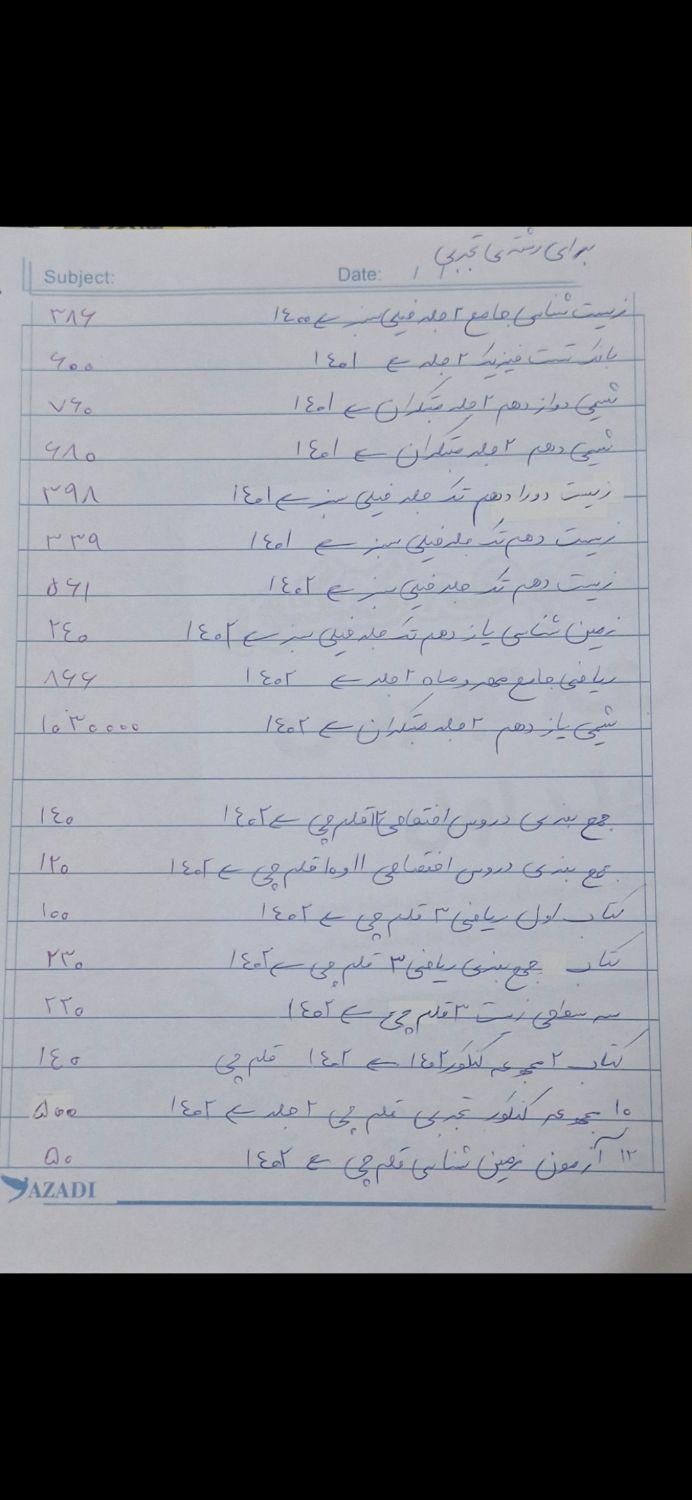 برای رشته ی تجربی
Subject: Date: / /
زیست شناسی جامع ۲ جلد فیلی سبز ← ۱۴۰۰ ۳۸۶
بانک تست فیزیک ۲ جلد ← ۱۴۰۱ ۶۰۰
شیمی دوازدهم ۲ جلد مبتکران ← ۱۴۰۱ ۷۶۰
شیمی دهم ۲ جلد مبتکران ← ۱۴۰۱ ۶۸۰
زیست دوازدهم تک جلد فیلی سبز ← ۱۴۰۱ ۳۹۸
زیست دهم تک جلد فیلی سبز ← ۱۴۰۱ ۳۳۹
زیست دهم تک جلد فیلی سبز ← ۱۴۰۲ ۵۶۱
زمین شناسی یازدهم تک جلد فیلی سبز ← ۱۴۰۲ ۲۴۰
ریاضی جامع مهروماه ۲ جلد ← ۱۴۰۲ ۸۶۶
شیمی یازدهم ۲ جلد مبتکران ← ۱۴۰۲ ۱۰۳۰۰۰۰
جمع بندی دروس اختصاصی ۱۲ قلم چی ← ۱۴۰۲ ۱۴۰
جمع بندی دروس اختصاصی ۱۱ و ۱۰ قلم چی ← ۱۴۰۲ ۱۲۰
کتاب اول ریاضی ۳ قلم چی ← ۱۴۰۲ ۱۰۰
کتاب جمع بندی ریاضی ۳ قلم چی ← ۱۴۰۲ ۲۳۰
سه سطحی زیست ۳ قلم چی ← ۱۴۰۲ ۲۲۰
کتاب ۲ مجموعه کنکور ۱۴۰۲ ← ۱۴۰۲ قلم چی ۱۴۰
۱۰ مجموعه کنکور تجربی قلم چی ۲ جلد ← ۱۴۰۲ ۵۰۰
۱۲ آزمون زمین شناسی قلم چی ← ۱۴۰۲ ۵۰
AZADI